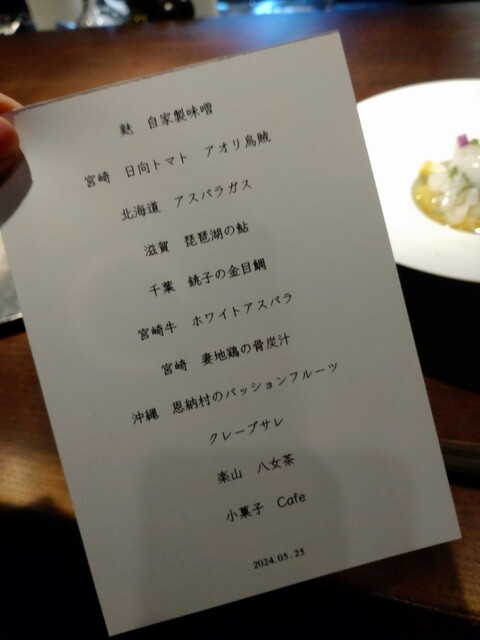 麩 自家製味噌
宮崎 日向トマト アオリ烏賊
北海道 アスパラガス
滋賀 琵琶湖の鮎
千葉 銚子の金目鯛
宮崎牛 ホワイトアスパラ
宮崎 妻地鶏の骨炭汁
沖縄 恩納村のパッションフルーツ
クレープサレ
楽山 八女茶
小菓子 Cafe
2024.05.25